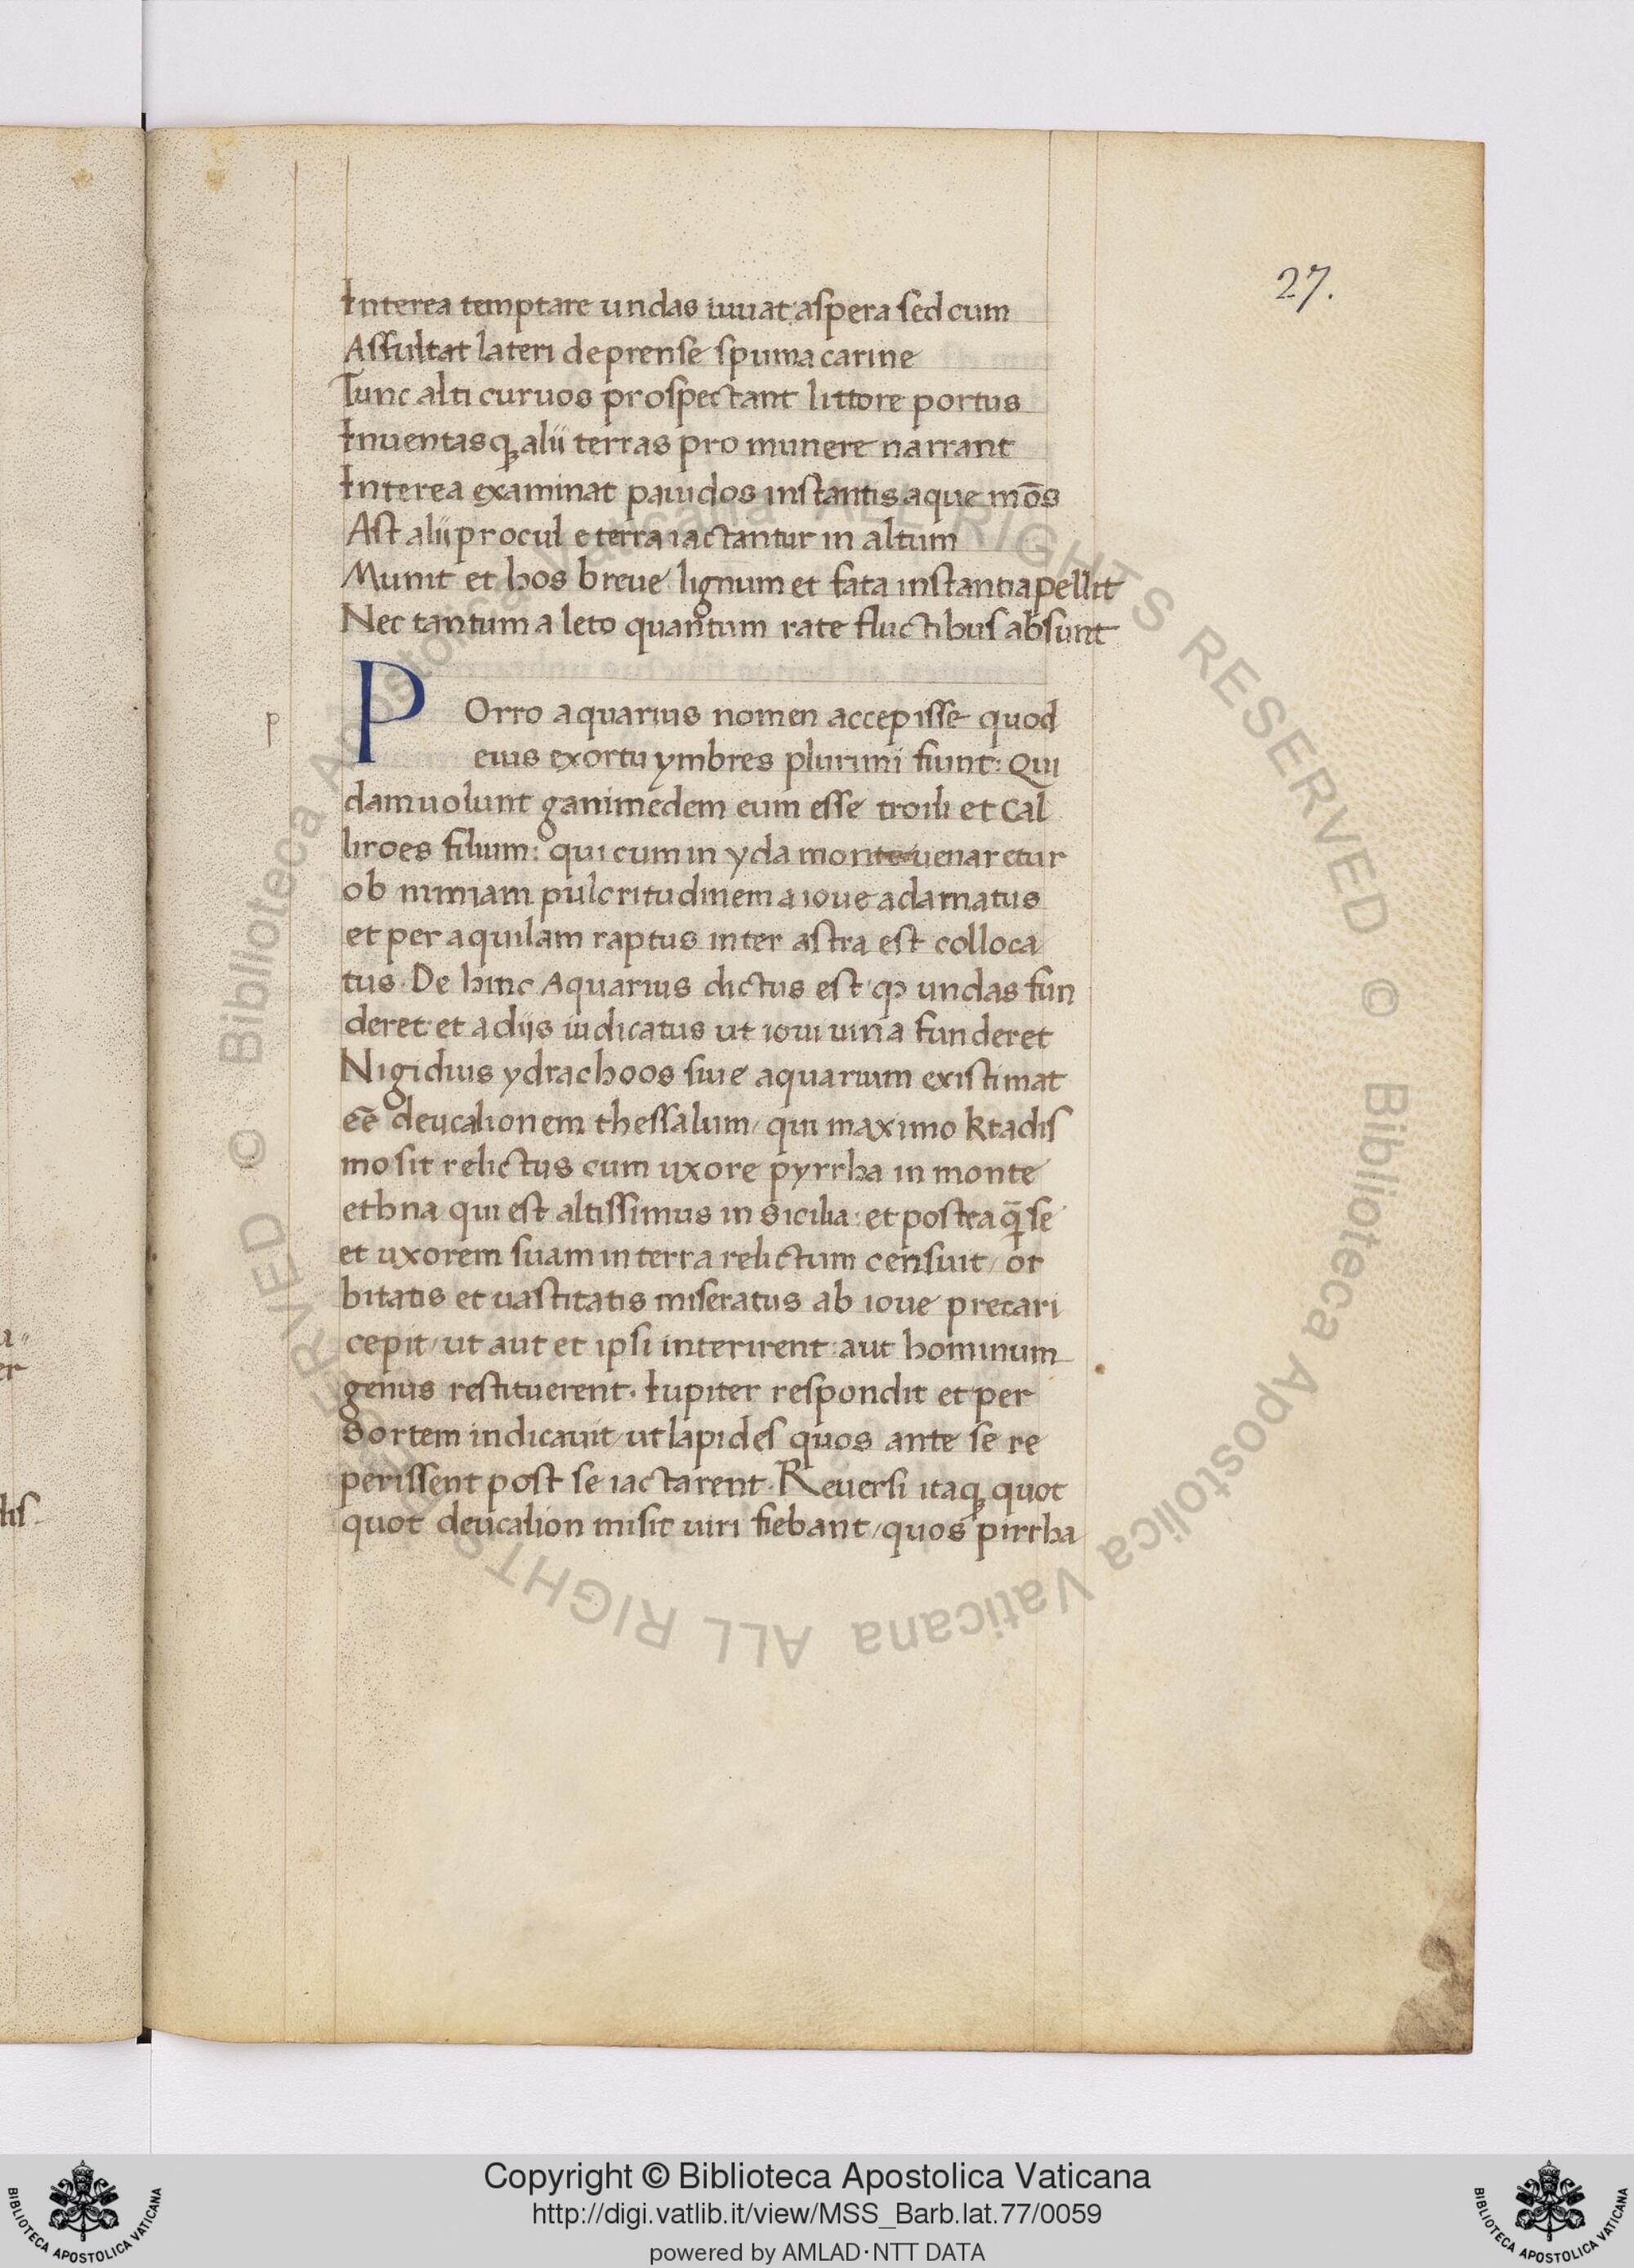 27.
Interea temptare undas iuuat: aspera sed cum
Assultat lateri deprense spuma carine
Tunc alti curuos prospectant littore portus
Inuentasqꝫ alii terras pro munere narrant
Interea examinat pauidos instantis aque mōs
Ast alii procul e terra iactantur in altum
Munit et hos breue lignum et fata instantia pellit
Nec tantum a leto quantum rate fluctibus absunt
p
POrro aquarius nomen accepisse quod
eius exortu ymbres plurimi fiunt: Qui
dam uolunt ganimedem eum esse troili et Cal
liroes filium: qui cum in yda monte uenaretur
ob nimiam pulcritudinem a ioue adamatus
et per aquilam raptus inter astra est colloca
tus. De hinc Aquarius dictus est / ꝙ undas fun
deret: et a diis iudicatus ut ioui uina funderet
Nigidius ydrachoos siue aquarium existimat
eē deucalionem thessalum / qui maximo ktadis
mo sit relictus cum uxore pyrrha in monte
ethna qui est altissimus in Sicilia: et postea q̄ se
et uxorem suam in terra relictum censuit / or
bitatis et uastitatis miseratus ab ioue precari
cepit / ut aut et ipsi interirent: aut hominum
genus restituerent. Iupiter respondit et per
Sortem indicauit / ut lapides quos ante se re
perissent post se iactarent. Reuersi itaqꝫ quot
quot deucalion misit uiri fiebant / quos pirrha
u
er
lis
© Biblioteca Apostolica Vaticana ALL RIGHTS RESERVED © Biblioteca Apostolica Vaticana ALL RIGHTS RESERVED
Copyright © Biblioteca Apostolica Vaticana
http://digi.vatlib.it/view/MSS_Barb.lat.77/0059
powered by AMLAD·NTT DATA
BIBLIOTECA APOSTOLICA VATICANA
BIBLIOTECA APOSTOLICA VATICANA